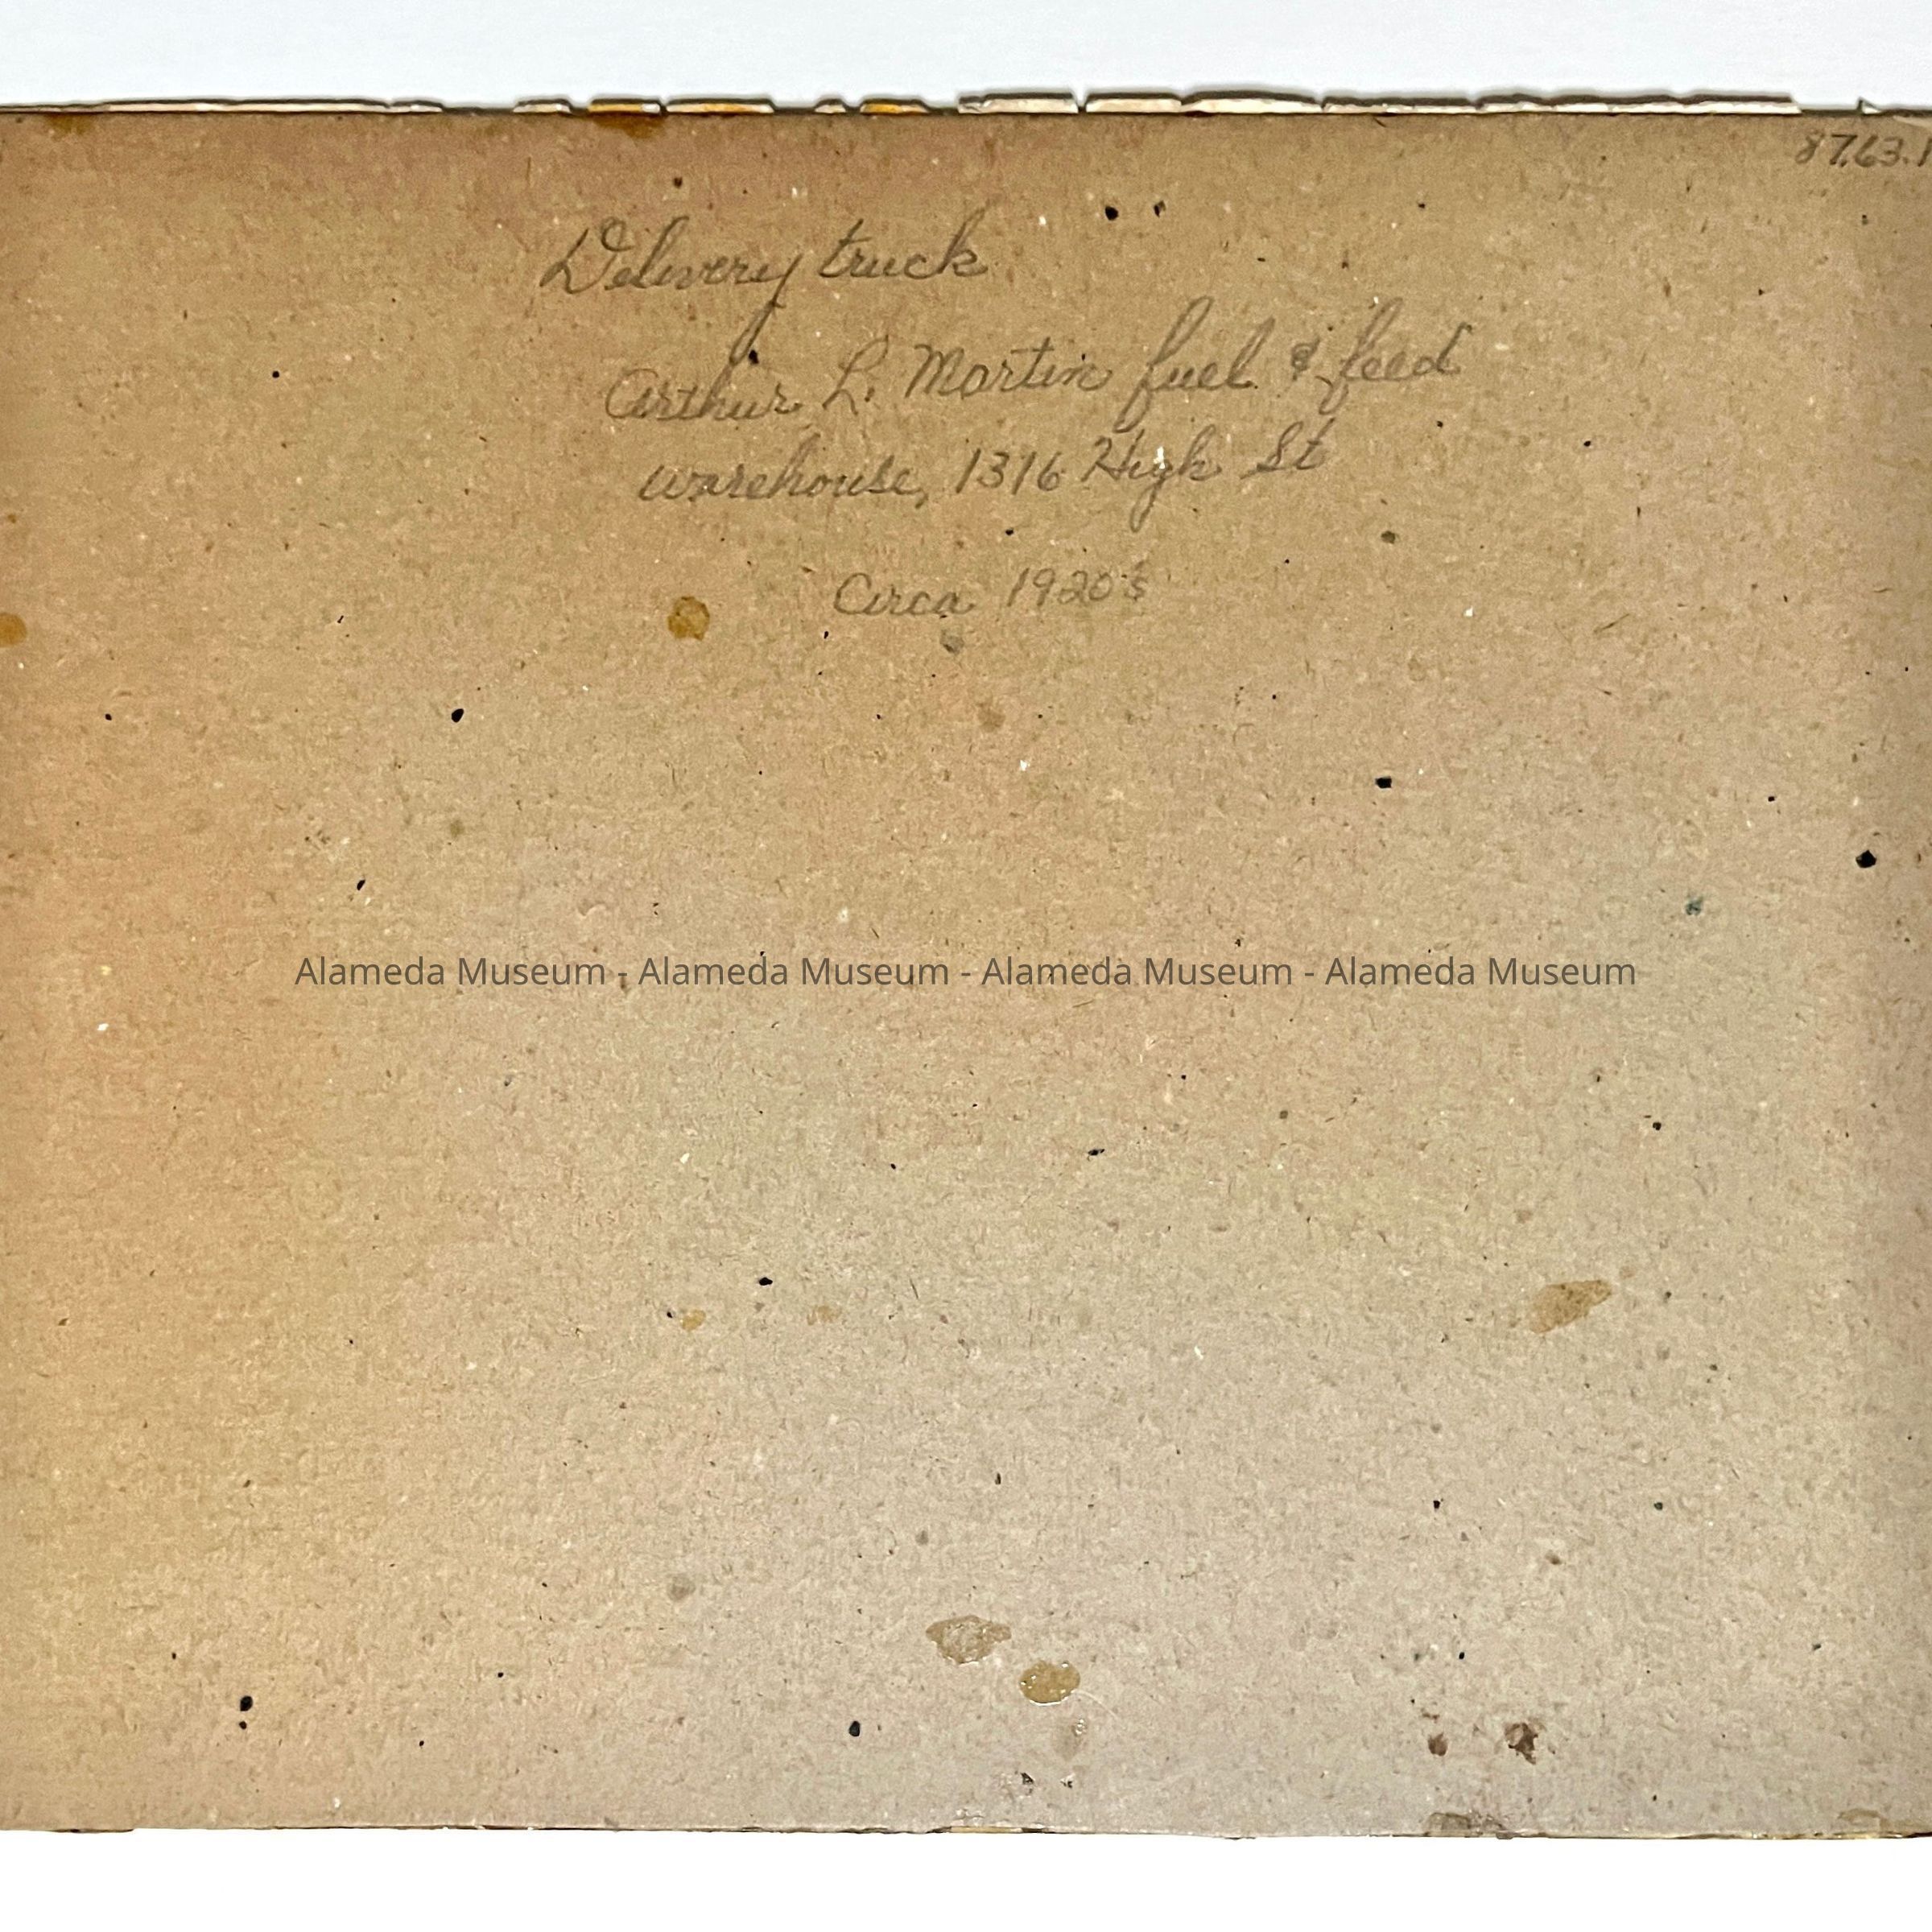 87.63.1
Delivery truck
Arthur L. Martin fuel & feed
warehouse, 1316 High St
Circa 1920's
Alameda Museum - Alameda Museum - Alameda Museum - Alameda Museum